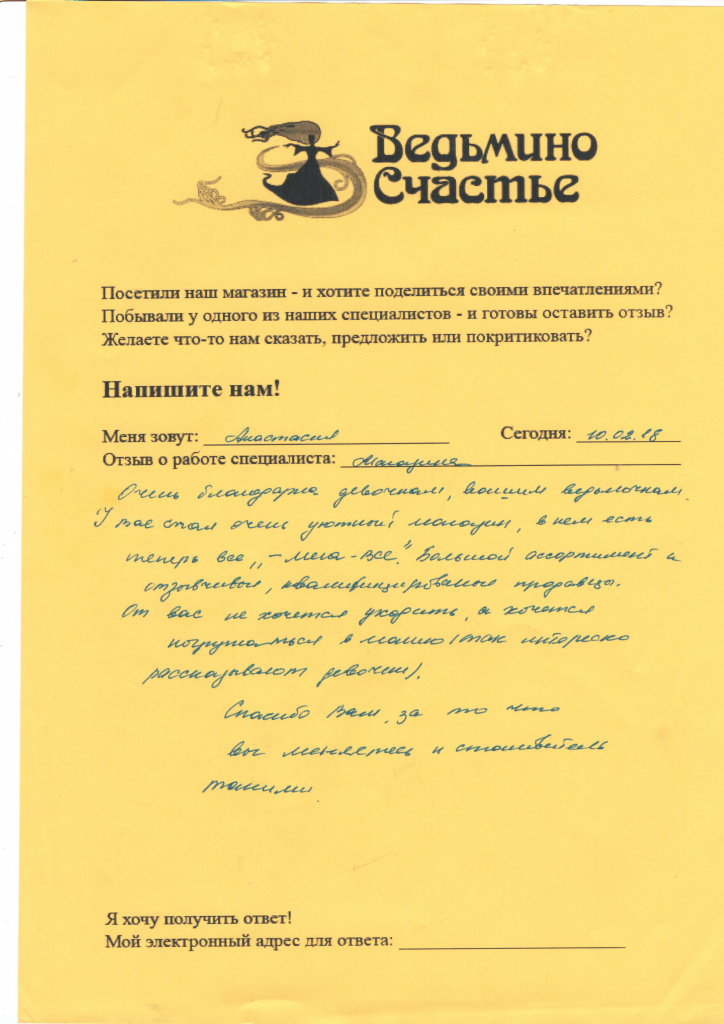 Ведьмино
Счастье
Посетили наш магазин - и хотите поделиться своими впечатлениями?
Побывали у одного из наших специалистов - и готовы оставить отзыв?
Желаете что-то нам сказать, предложить или покритиковать?
Напишите нам!
Меня зовут: Анастасия Сегодня: 10.02.18
Отзыв о работе специалиста: Магазина
Очень благодарна девочкам, вашим ведьмочкам.
У Вас стал очень уютный магазин, в нем есть
теперь все „- мега-все". Большой ассортимент и
отзывчивые, квалифицированые продавцы.
От вас не хочется уходить, а хочется
погружаться в магию (так интересно
рассказывают девочки).
Спасибо Вам, за то что
вы меняетесь и становитесь
такими.
Я хочу получить ответ!
Мой электронный адрес для ответа: